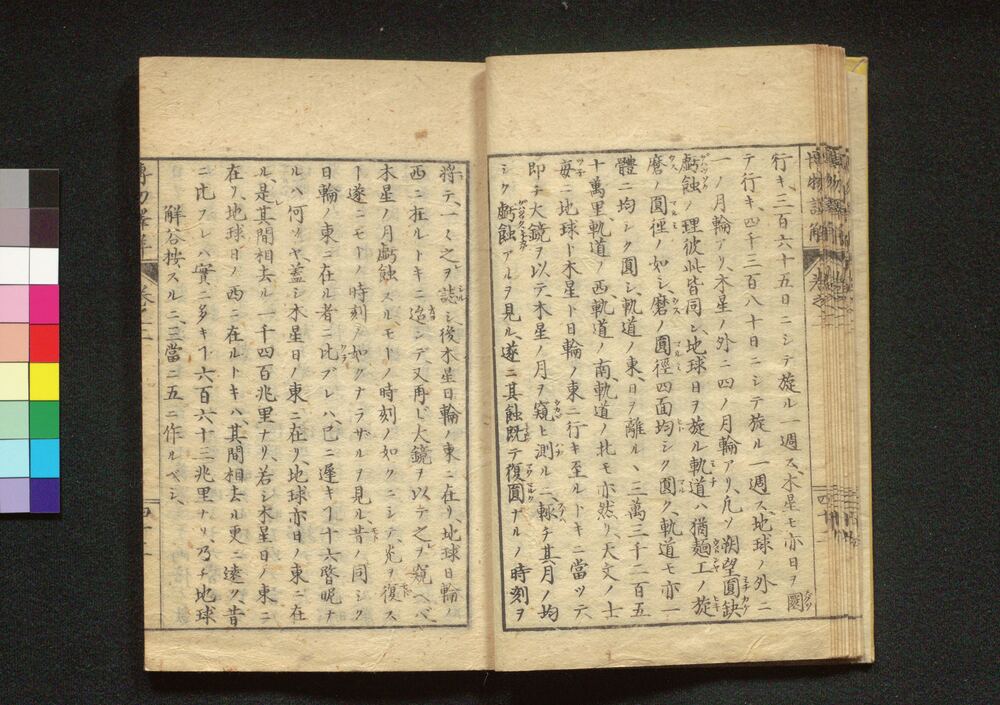 行キ、三百六十五日ニシテ旋ル一週ス、木星モ亦日ヲ圜
テ行キ、四千三百八十日ニシテ旋ル一週ス、地球ノ外ニ
一ノ月輪アリ、木星ノ外ニ四ノ月輪アリ、凡ソ朔望圓缺
虧蝕ノ理彼此皆同シ、地球日ヲ旋ル軌道ハ猶麺工ノ旋
磨ノ圓徑ノ如シ、磨ノ圓徑四面均シク圓ク、軌道モ亦一
體ニ均シク圓シ、軌道ノ東日ヲ離ル、三萬三千二百五
十萬里、軌道ノ西軌道ノ南軌道ノ北モ亦然リ、天文ノ士
毎ニ地球ト木星ト日輪ノ東ニ行キ至ルトキニ當ツテ
即チ大鏡ヲ以テ、木星ノ月ヲ窺ヒ測ルニ、輙チ其月ノ均
シク虧蝕アルヲ見ル、遂ニ其蝕既テ復圓ナルノ時刻ヲ
將テ、一々之ヲ誌シ後木星日輪ノ東ニ在リ、地球日輪ノ
西ニ在ルトキニ迨シデ、又再ビ大鏡ヲ以テ之ヲ窺ヘバ
木星ノ月虧蝕スル、モトノ時刻ノ如クニシテ、光ヲ復ス
ー遂ニモトノ時刻ノ如クナラザルヲ見ル、昔ノ同シク
日輪ノ東ニ在ル者ニ比ブレハ、已ニ遲キヿ十六瞥眤ナ
ルハ何ソヤ、蓋シ木星日ノ東ニ在リ地球亦日ノ東ニ在
ル、是其間相去ル一千四百兆里ナリ、若シ木星日ノ東ニ
在リ、地球日ノ西ニ在ルトキハ、其間相去ル更ニ遠ク昔
ニ比フレハ實ニ多キヿ六百六十三兆里ナリ、乃チ地球
解谷按スルニ、三當ニ五ニ作ルベシ、